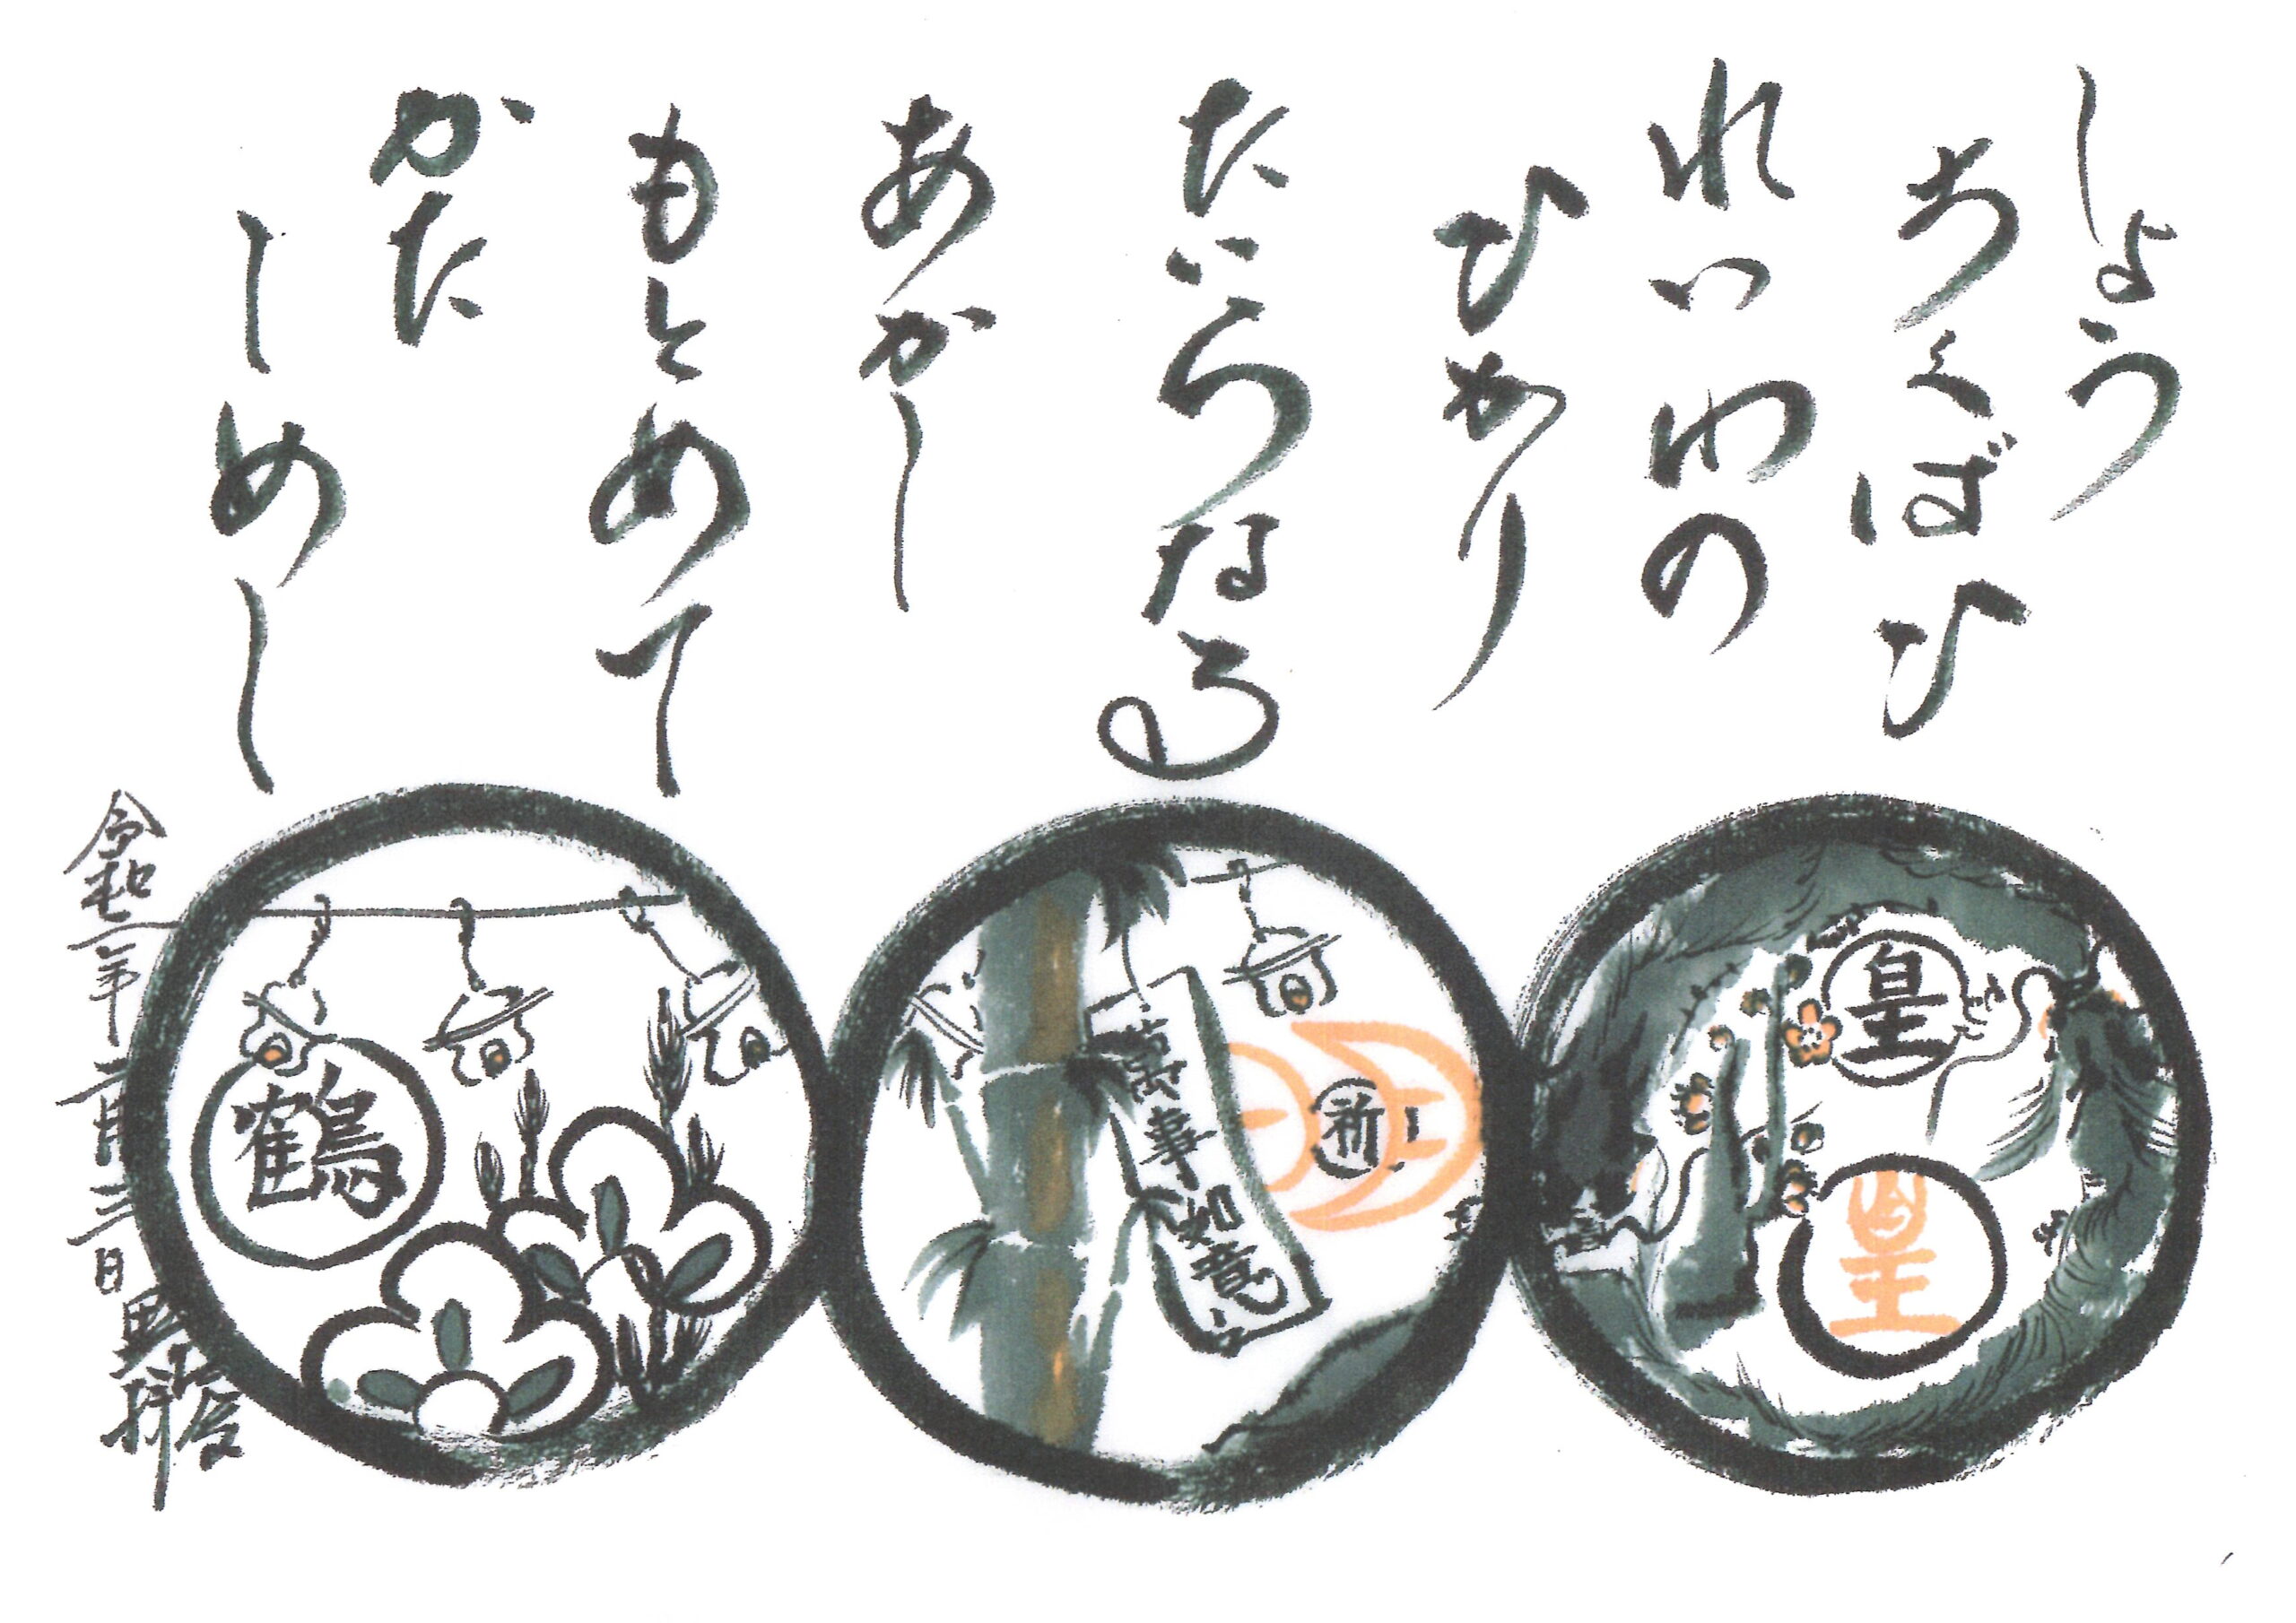 しょう
ちくばひ
れいわの
ひかり
たいらなる
あかし
もとめて
かた
しめし
皇
皇
祈
萬事如意
鶴
令和二年二月三日